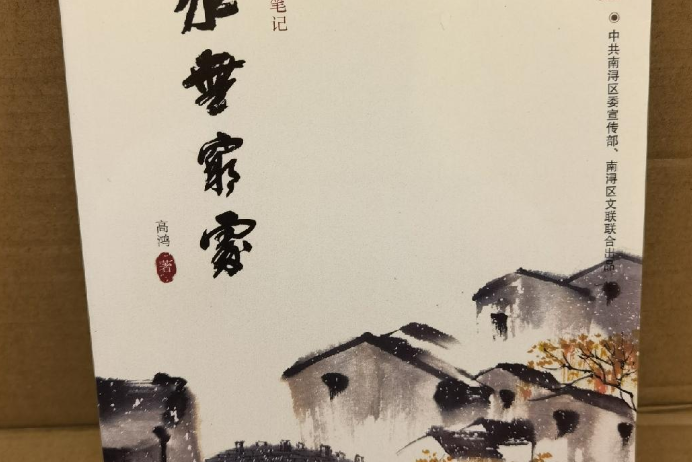 中共南浔区委宣传部、南浔区文联联合出品
笔记
無窮處
高鸿
著